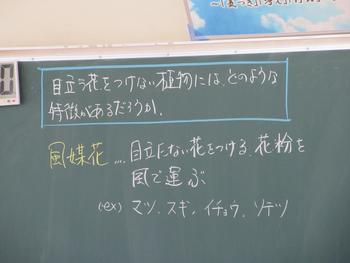 目立つ花をつけない植物には、どのような
特徴があるだろうか。
風媒花 … 目立たない花をつける、花粉を
風で運ぶ
(ex) マツ、スギ、イチョウ、ソテツ